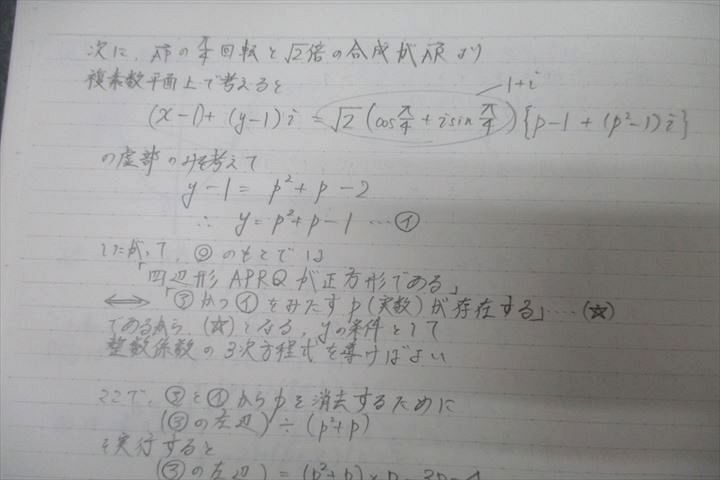 次に、APの π/4 回転と√2倍の合成がARより
複素数平面上で考えると
1+i
(x-1)+(y-1)i = √2(cos π/4 + i sin π/4){p-1+(p²-1)i}
の虚部のみを考えて
y-1 = p²+p-2
∴ y=p²+p-1 …④
したがって、◎のもとでは
「四辺形APRQが正方形である」
⇔「③かつ④をみたすp(実数)が存在する」…(☆)
であるから、(☆)となる、yの条件として
整数係数の3次方程式を導けばよい
ここで、③と④からpを消去するために
(③の左辺)÷(p²+p)
を実行すると
(③の左辺) = (p²+p)×p-3p-1